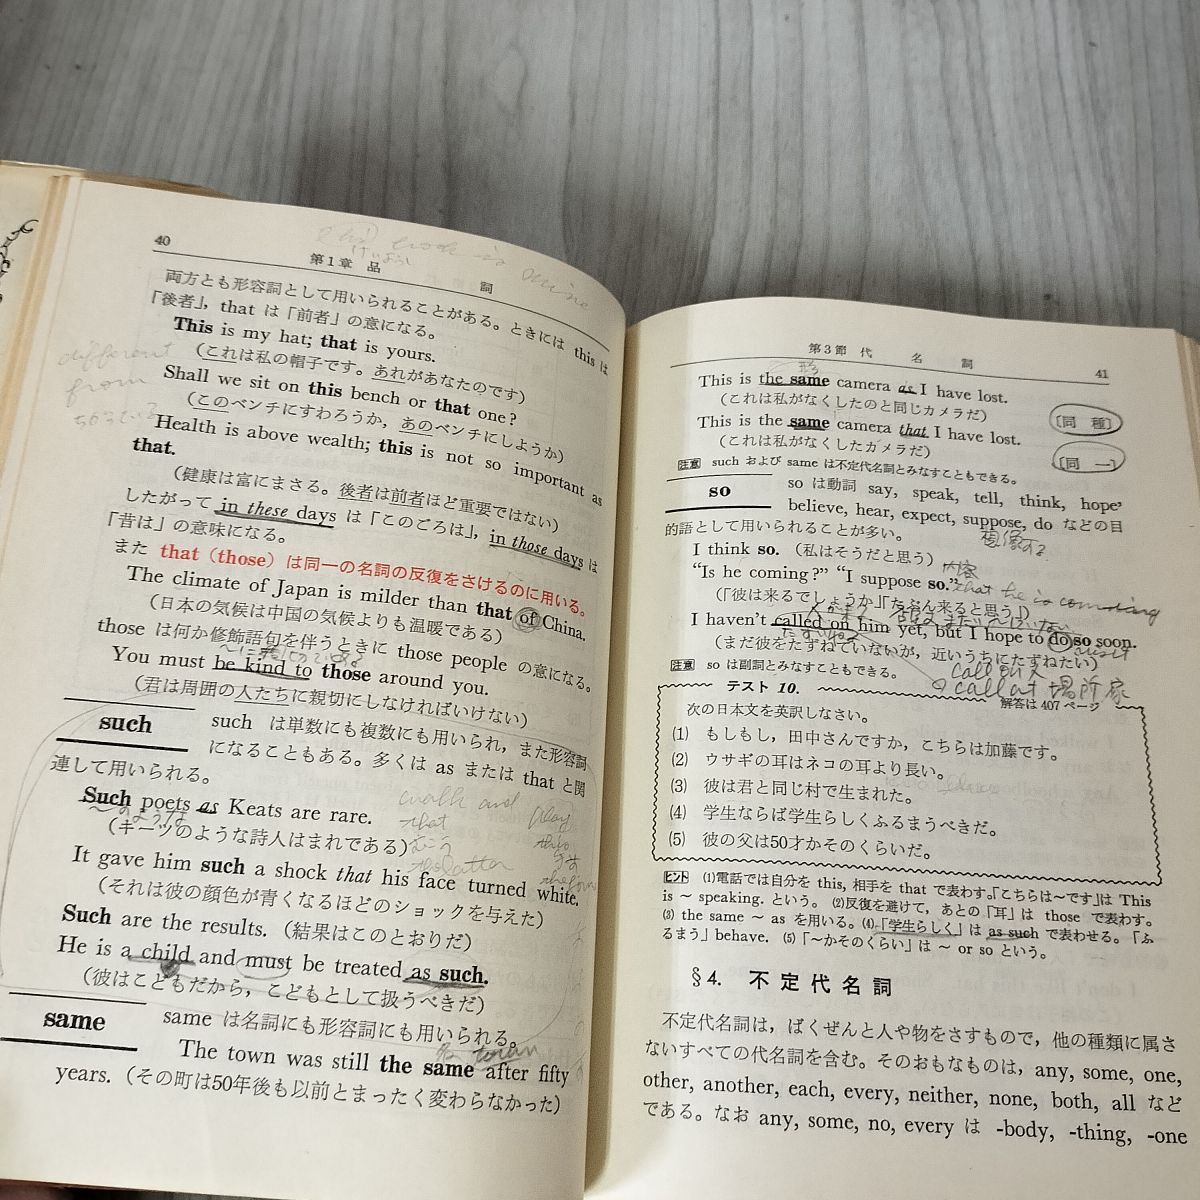 40
第1章 品 詞
両方とも形容詞として用いられることがある。ときには this は
「後者」, that は「前者」の意になる。
This is my hat; that is yours.
(これは私の帽子です。あれがあなたのです)
Shall we sit on this bench or that one?
(このベンチにすわろうか, あのベンチにしようか)
Health is above wealth; this is not so important as
that.
(健康は富にまさる。後者は前者ほど重要ではない)
したがって in these days は「このごろは」, in those days は
「昔は」の意味になる。
また that (those) は同一の名詞の反復をさけるのに用いる。
The climate of Japan is milder than that of China.
(日本の気候は中国の気候よりも温暖である)
those は何か修飾語句を伴うときに those people の意になる。
You must be kind to those around you.
(君は周囲の人たちに親切にしなければいけない)
such
such は単数にも複数にも用いられ, また形容詞
になることもある。多くは as または that と関
連して用いられる。
Such poets as Keats are rare.
~のような
(キーツのような詩人はまれである)
It gave him such a shock that his face turned white.
(それは彼の顔色が青くなるほどのショックを与えた)
Such are the results. (結果はこのとおりだ)
He is a child and must be treated as such.
(彼はこどもだから, こどもとして扱うべきだ)
same
same は名詞にも形容詞にも用いられる。
The town was still the same after fifty
years. (その町は50年後も以前とまったく変わらなかった)
different
from
walk and play
that this
the latter
town
第3節 代 名 詞
41
This is the same camera as I have lost.
(これは私がなくしたのと同じカメラだ)
〔同 種〕
This is the same camera that I have lost.
(これは私がなくしたカメラだ)
〔同 一〕
注意 such および same は不定代名詞とみなすこともできる。
so
so は動詞 say, speak, tell, think, hope,
believe, hear, expect, suppose, do などの目
的語として用いられることが多い。
想像する
I think so. (私はそうだと思う)
内容
“Is he coming?” “I suppose so.”
that he is coming
(「彼は来るでしょうか」「たぶん来ると思う」)
I haven't called on him yet, but I hope to do so soon.
たずねる
visit
(まだ彼をたずねていないが, 近いうちにたずねたい)
注意 so は副詞とみなすこともできる。
call on 人
call at 場所 家
テスト 10.
解答は 407 ページ
次の日本文を英訳しなさい。
(1) もしもし, 田中さんですか, こちらは加藤です。
(2) ウサギの耳はネコの耳より長い。
(3) 彼は君と同じ村で生まれた。
(4) 学生ならば学生らしくふるまうべきだ。
(5) 彼の父は50才かそのくらいだ。
ヒント (1)電話では自分を this, 相手を that で表わす。「こちらは~です」は This
is ~ speaking. という。 (2)反復を避けて, あとの「耳」は those で表わす。
(3) the same ~ as を用いる。(4)「学生らしく」は as such で表わせる。「ふ
るまう」 behave. (5)「~かそのくらい」は ~ or so という。
§4. 不 定 代 名 詞
不定代名詞は, ばくぜんと人や物をさすもので, 他の種類に属さ
ないすべての代名詞を含む。そのおもなものは, any, some, one,
other, another, each, every, neither, none, both, all など
である。なお any, some, no, every は -body, -thing, -one